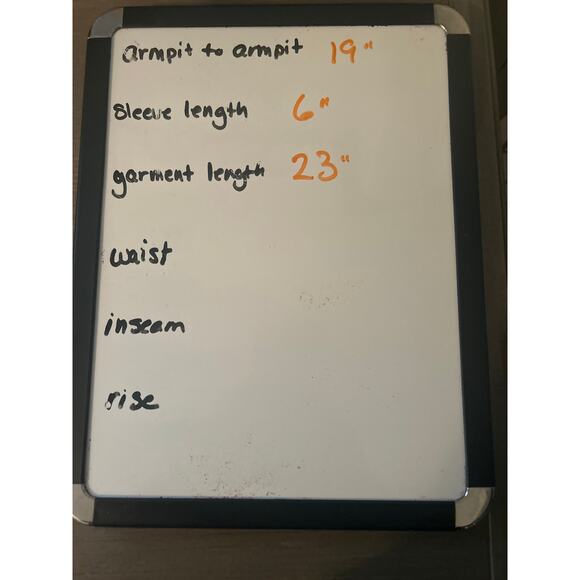 armpit to armpit 19"
sleeve length 6"
garment length 23"
waist
inseam
rise